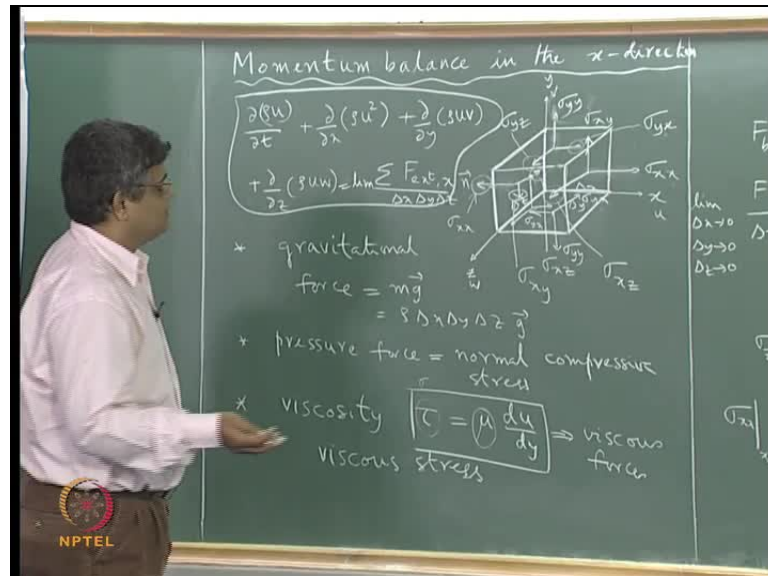 Momentum balance in the x-direction
∂(ρu)/∂t + ∂/∂x (ρu²) + ∂/∂y (ρuv)
+ ∂/∂z (ρuw) = lim ∑ Fext, x / Δx Δy Δz n⃗
y
v
σyy
σxy
σyz
σyx
σxx
x
u
σxx
z
w
σxy
σxz
σyy
σxz
* gravitational
force = mg⃗
= ρ Δx Δy Δz g⃗
* pressure force = normal compressive
stress
* viscosity τ = μ du/dy ⇒ viscous
viscous stress forces
lim
Δx→0
Δy→0
Δz→0
NPTEL